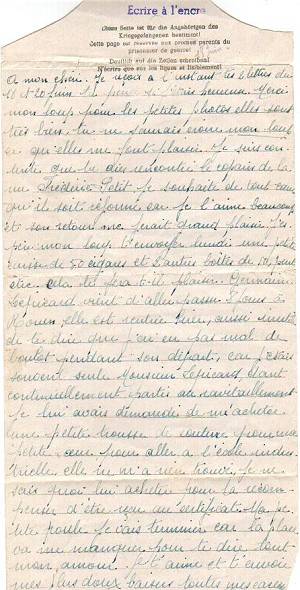 Ecrire à l'encre
Diese Seite ist für die Angehörigen des
Kriegsgefangenen bestimmt!
Cette page est réservée aux proches parents du
prisonnier de guerre!
Deutlich auf die Zeilen schreiben!
N'écrire que sur les lignes et lisiblement!
a mon chéri. Je reçois à l'instant tes 2 lettres du
et 20 juin. heureux. Merci
mon loup pour les petites photos elles sont
très bien, tu ne saurais croire mon loup
ce qu'elles me font plaisir. Je suis con-
tente que tu aies rencontré le copain de la
rue Frédéric Petit. Je souhaite de tout cœur
qu'il soit réformé car je l'aime beaucoup
et son retour me ferait grand plaisir. J'es-
père mon loup t'envoyer lundi une petite
caisse de 50 cigares et 2 autres boîtes de 10, peut
être cela te fera t-il plaisir. Germaine
Lepicard vient d'aller passer 8 jours à
Rouen, elle est rentrée hier, aussi inutile
de te dire que j'ai eu pas mal de
boulot pendant son départ, car j'étais
souvent seule Monsieur Lepicard étant
continuellement parti au ravitaillement
Je lui avais demandé de m'acheter
une petite trousse de couture pour ma
petite sœur pour aller à l'école indus-
trielle, elle ne m'a rien trouvé, je ne
sais quoi lui acheter pour la récom-
penser d'être reçu au certificat. Ma pe-
tite poule je vais terminer car la place
va me manquer pour te dire tout
mon amour. Je t'aime et t'envoie
mes plus doux baisers toutes mes caresses